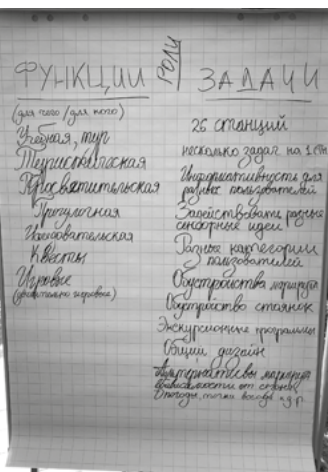 ФУНКЦИИ
(для чего / для кого)
Учебная, тур
Туристическая
Просветительская
Прогулочная
Исследовательская
Квесты
Игровые
РОЛИ
ЗАДАЧИ
26 станций
несколько задач на 1 ст.
Информативность для
разных пользователей
Задействовать разные
сенсорные идеи
Разные категории
пользователей
Обустройства маршрута
Обустройство стоянок
Экскурсионные программы
Общий дизайн
Альтернативы маршрута
в зависимости от сезона,
погоды, точки восхода и др.